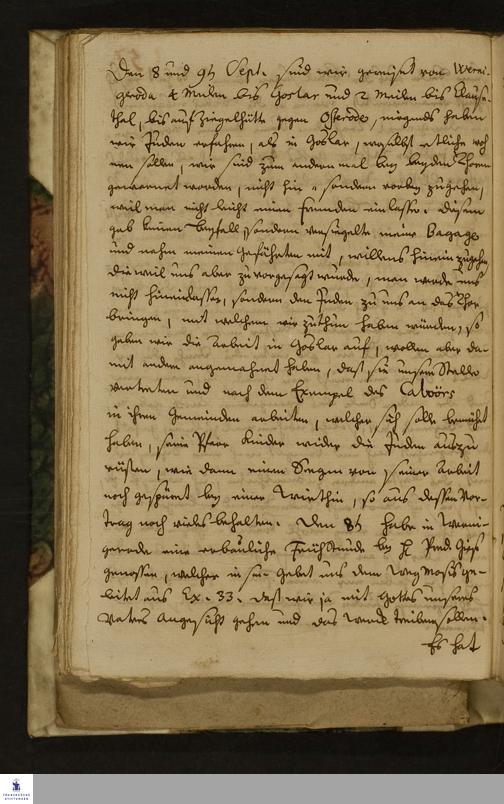 Den 8 und 9th Sept. sind wir gereiset von Werni-
geroda 4 Meilen bis Goslar und 2 Meilen bis Clausthal
thal, bis auf Ziegelhütte gegen Osterode, nirgends haben
wir Juden erfahren, als in Goslar, woselbst etliche woh
nen sollen, wir sind zum andern mal bey beyden Thoren
gewarnet worden, nicht hin- sondern vorbey zugehen,
weil man nicht leicht einen Fremden einlasse. Diesem
gab keinen beyfall sondern versiegelte meine Bagage
und nahm meinen Gefährten mit, willens hinein zugehen
dieweil uns aber zuvor gesagt wurde, man werde uns
nicht hineinlassen, sondern den Juden zu uns an das Thor
bringen, mit welchem wir zuthun haben würden, so
gaben wir die Arbeit in Goslar auf, wollen aber da-
mit andere angemahnet haben, daß sie unsere Stelle
vertreten und nach dem Exempel des Calvörs
in ihren Gemeinden arbeiten, welcher sich solle bemühet
haben, seine Pfarr Kinder wider die Juden auszu
rüsten, wie dann einen Seegen von seiner Arbeit
noch gespüret bey einer Wirthin, so aus dessen Vor-
trag noch vieles behalten. Den 8th habe in Werni-
gerode eine erbauliche Frühstunde bey H.
genossen, welcher in sein Gebet uns dem Weg Mosis ge-
bitet aus Ex. 33. daß wir ja mit Gottes unseres
Vaters Angesicht gehen und das Werck treiben sollen.
Es hat
FRANCKESCHE
STIFTUNGEN